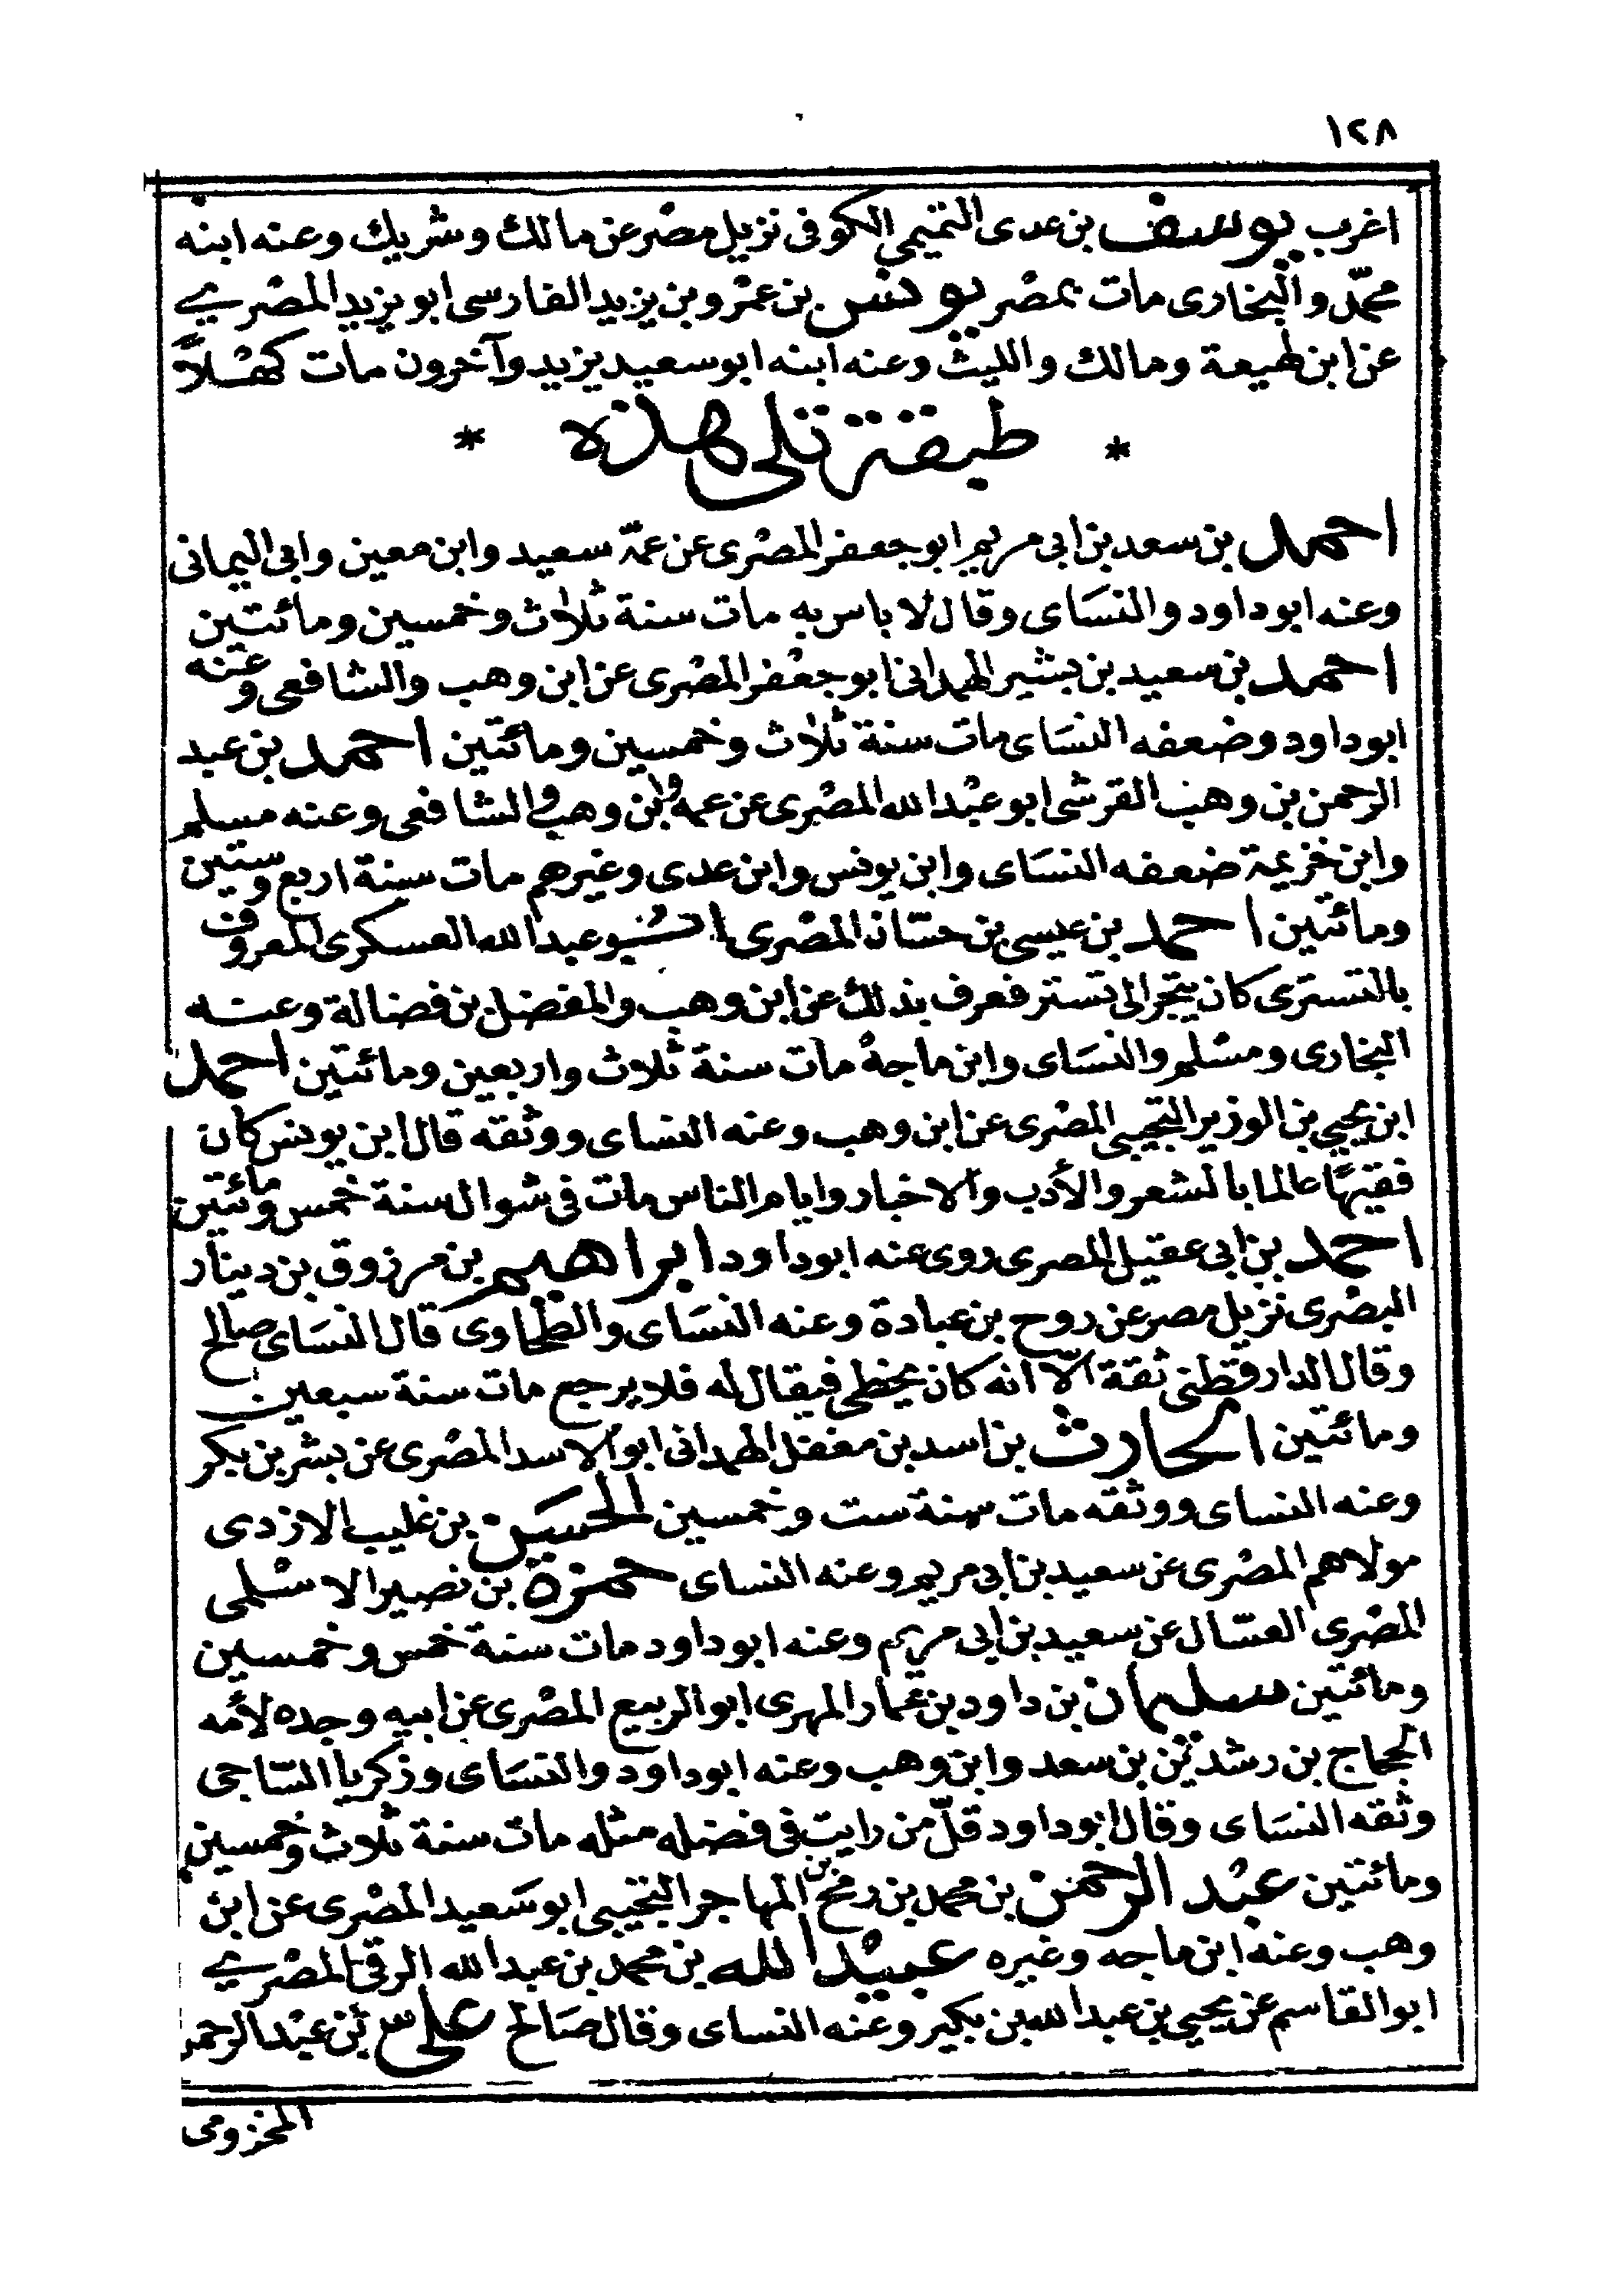 ١٢٨
اغرب يوسف بن عدى التميمى الكوفى نزيل مصر عن مالك وشريك وعنه ابنه
محمّد والبخارى مات بمصر يونس بن عمرو بن يزيد الفارسى ابو يزيد المصرى
عن ابن لهيعة ومالك والليث وعنه ابنه ابو سعيد يزيد وآخرون مات كهلاً
* طبقة تلى هذه *
احمد بن سعد بن ابى مريم ابو جعفر المصرى عن عمّه سعيد وابن معين وابى اليمانى
وعنه ابو داود والنسَاى وقال لا باس به مات سنة ثلاث وخمسين ومائتين
احمد بن سعيد بن بشير الهمدانى ابو جعفر المصرى عن ابن وهب والشافعى وعنه
ابو داود وضعفه النسَاى مات سنة ثلاث وخمسين ومائتين احمد بن عبد
الرحمن بن وهب القرشى ابو عبد الله المصرى عن عمه ابن وهب والشافعى وعنه مسلم
وابن خزيمة ضعفه النسَاى وابن يونس وابن عدى وغيرهم مات سنة اربع وستين
ومائتين احمد بن عيسى بن حسّان المصرى ابو عبد الله العسكرى المعروف
بالتسترى كان يتجر الى تستر فعرف بذلك عن ابن وهب والمفضل بن فضالة وعنه
البخارى ومسلم والنسَاى وابن ماجه مات سنة ثلاث واربعين ومائتين احمد
ابن يحيى بن الوزير التجيبى المصرى عن ابن وهب وعنه النساى ووثقه قال ابن يونس كان
فقيهًا عالما بالشعر والأدب والاخبار وايام الناس مات فى شوال سنة خمس ومائتين
احمد بن ابى عقيل المصرى روى عنه ابو داود ابراهيم بن مرزوق بن دينار
البصرى نزيل مصر عن روح بن عبادة وعنه النسَاى والطحاوى قال النسَاى صالح
وقال الدارقطنى ثقة الاّ انه كان يخطى فيقال له فلا يرجع مات سنة سبعين
ومائتين الحارث بن اسد بن معقل الهمدانى ابو الاسد المصرى عن بشر بن بكر
وعنه النساى ووثقه مات سنة ست وخمسين الحسين بن غليب الازدى
مولاهم المصرى عن سعيد بن ابى مريم وعنه النساى حمزة بن نصير الاسلمى
المصرى العسّال عن سعيد بن ابى مريم وعنه ابو داود مات سنة خمس وخمسين
ومائتين سليمان بن داود بن عمار المهرى ابو الربيع المصرى عن ابيه وجده لأمه
الحجاج بن رشدين بن سعد وابن وهب وعنه ابو داود والنسَاى وزكريا السّاجى
وثقه النسَاى وقال ابو داود قلّ من رايت فى فضله مثله مات سنة ثلاث وخمسين
ومائتين عبد الرحمن بن محمد بن رمح بن المهاجر التجيبى ابو سَعيد المصرى عن ابن
وهب وعنه ابن ماجه وغيره عبيد الله بن محمد بن عبد الله الرقى المصرى
ابو القاسم عن يحيى بن عبد الله بن بكير وعنه النساى وقال صَالح على بن عبد الرحمن
المخزومى